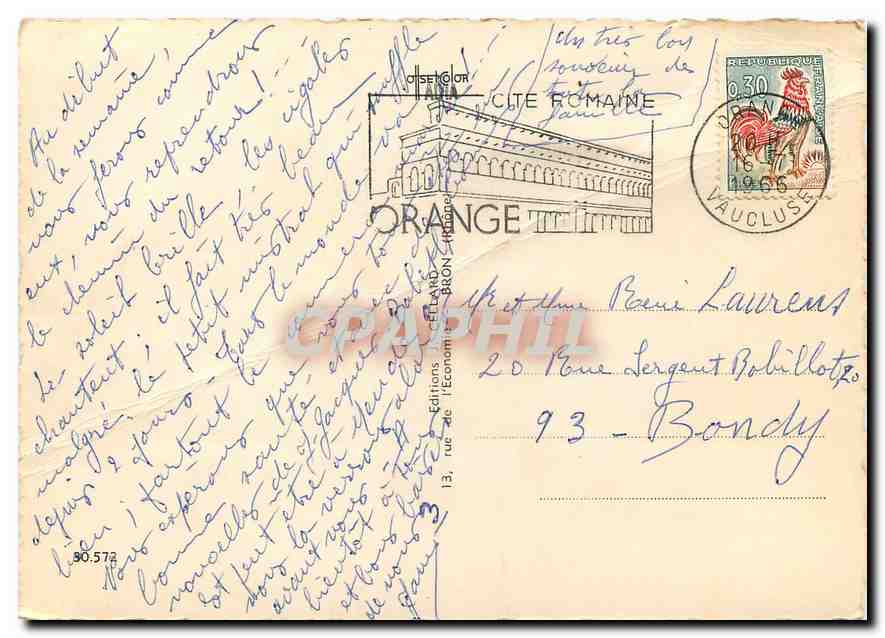 Au début
de la semaine,
nous ferons comme
eux, nous reprendrons
le chemin du retour !
Le soleil brille, les cigales
chantent ; il fait très beau
malgré le petit mistral qui souffle
depuis 2 jours. Tout le monde va
bien ; partout le
Nous espérons que vous tous
bonne santé et avec de
nouvelles de J. Jacques
Est peut être à
nous la verrons
avant vous. A
bientôt à tous
et bons baisers
de nous 3
un très bon
souvenir de
toute la
famille
CITE ROMAINE
ORANGE
REPUBLIQUE FRANÇAISE
0,30
ORANGE
16
1966
VAUCLUSE
Editions CELLARD
13, rue de l'Economie BRON (Rhône)
CPAPHIL
Mr et Mme René Laurens
20 Rue Sergent Bobillot
20
93 - Bondy
30.572